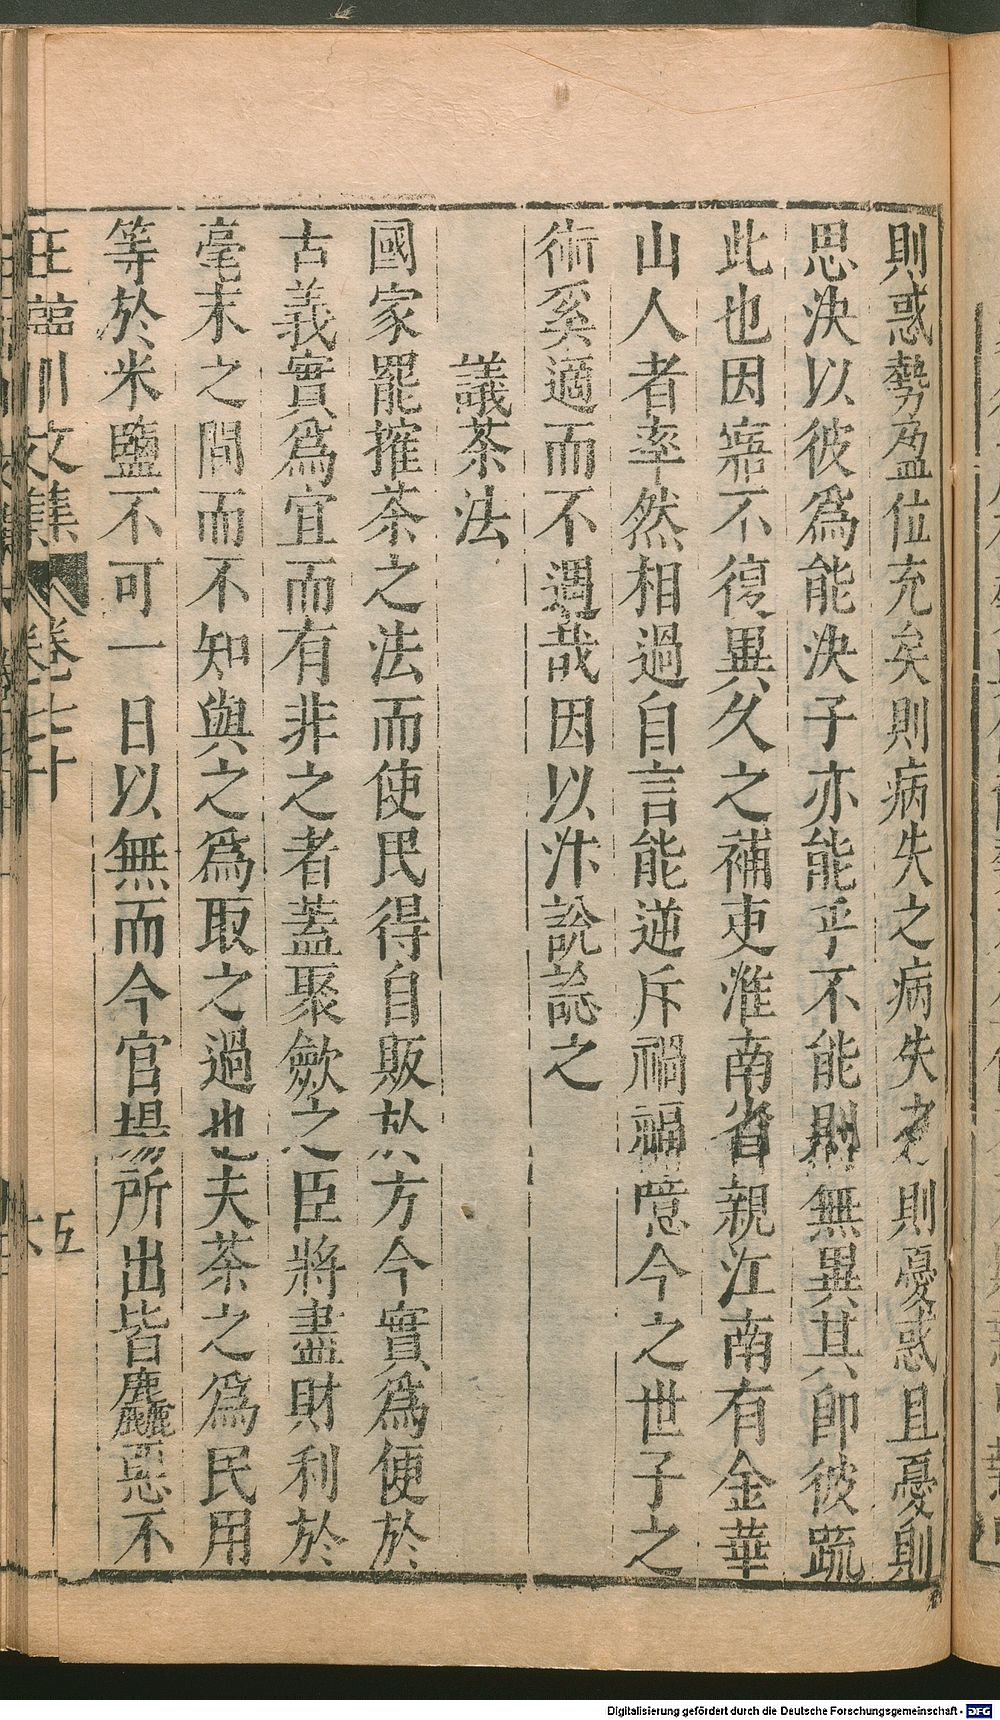 則惑勢盈位充矣則病失之病失之則憂惑且憂則
思決以彼爲能決子亦能乎不能則無異其卽彼䟽
此也因寤不復異久之補吏淮南省親江南有金華
山人者率然相過自言能逆斥禍福噫今之世子之
術奚適而不遇哉因以汴說誌之
議茶法
國家罷搉茶之法而使民得自販於方今實爲便於
古義實爲宜而有非之者蓋聚歛之臣將盡財利於
毫末之間而不知與之爲取之過也夫茶之爲民用
等於米鹽不可一日以無而今官場所出皆麤惡不
王臨川文集 卷七十
五
Digitalisierung gefördert durch die Deutsche Forschungsgemeinschaft - DFG